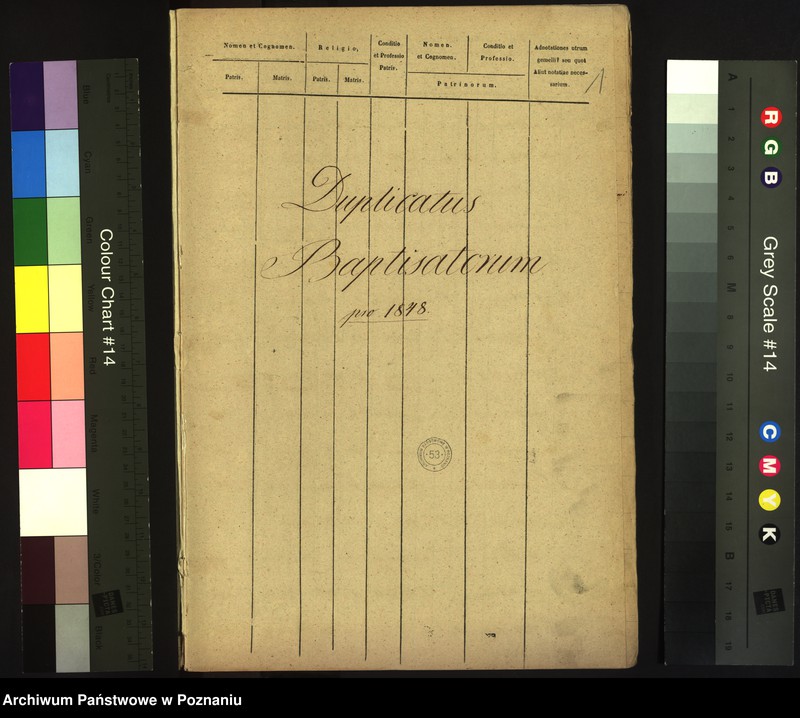 Nomen et Cognomen.
Religio,
Conditio
et Professio
Patris.
Nomen.
et Cognomen.
Conditio et
Professio.
Adnotationes utrum
gemelli? seu quot
Aliut notatiae neces-
sariem.
Patris.
Matris.
Patris.
Matris.
Patrinorum.
1
Duplicatus
Baptisatorum
pro 1848.
53
Colour Chart #14
Blue
Cyan
Green
Yellow
Red
Magenta
White
3/Color
Black
Grey Scale #14
R
G
B
C
M
Y
K
A
1
2
3
4
5
6
M
8
9
10
11
12
13
14
15
B
17
18
19
Archiwum Państwowe w Poznaniu